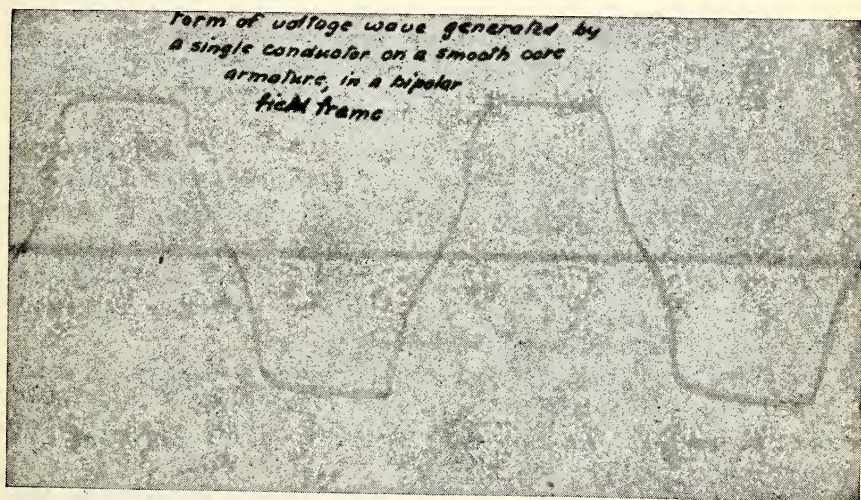 Form of voltage wave generated by
a single conductor on a smooth core
armature, in a bipolar
field frame